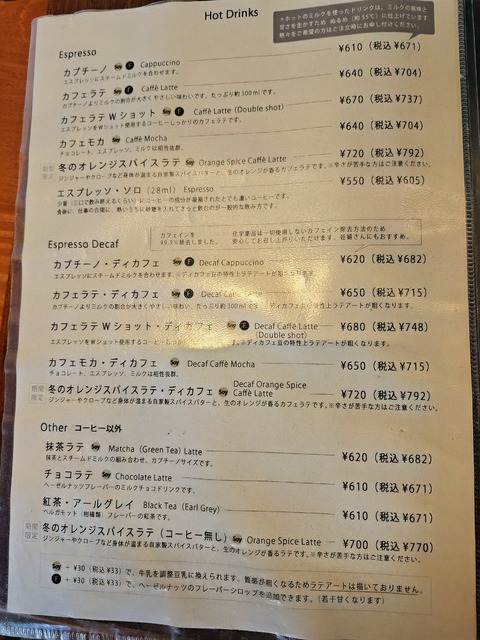 Hot Drinks
＊ホットのミルクを使ったドリンクは、ミルクの風味と
甘さを生かすため ぬるめ（約55℃）に仕上げています。
熱々をご希望の方はご注文時にお申し付けください。
Espresso
カプチーノ Soy F Cappuccino ¥610（税込 ¥671）
エスプレッソにスチームドミルクを合わせます。
カフェラテ Soy F Caffè Latte ¥640（税込 ¥704）
カプチーノよりミルクの割合が大きくやさしい味わいです。たっぷり約300mlです。
カフェラテ Wショット Soy F Caffè Latte（Double shot） ¥670（税込 ¥737）
エスプレッソをWショット使用するコーヒーしっかりのカフェラテです。
カフェモカ Soy Caffè Mocha ¥640（税込 ¥704）
チョコレート、エスプレッソ、ミルクは相性抜群。
期間限定 冬のオレンジスパイスラテ Soy Orange Spice Caffè Latte ¥720（税込 ¥792）
ジンジャーやクローブなど身体が温まる自家製スパイスバターと、生のオレンジが香るカフェラテです。※辛さが苦手な方はご注意ください。
エスプレッソ・ソロ（28ml） Espresso ¥550（税込 ¥605）
少量（三口で飲み終えるくらい）にコーヒーの成分が凝縮されたとても濃いコーヒーです。
食後に、仕事の合間に、熱いうちに砂糖を入れてさっと飲むのが一般的な飲み方です。
Espresso Decaf
カフェインを 化学薬品は一切使用しないカフェイン除去方法のため
99.9％除去しました。 安心してお召し上がりいただけます。妊婦さんにもおすすめ。
カプチーノ・ディカフェ Soy F Decaf Cappuccino ¥620（税込 ¥682）
エスプレッソにスチームドミルクを合わせます。※ディカフェ豆の特性上ラテアートが粗くなります。
カフェラテ・ディカフェ Soy F Decaf Caffè Latte ¥650（税込 ¥715）
カプチーノよりミルクの割合が大きくやさしい味わい、たっぷり約300mlです。※ディカフェ豆の特性上ラテアートが粗くなります。
カフェラテ Wショット・ディカフェ Soy F Decaf Caffè Latte ¥680（税込 ¥748）
（Double shot）
エスプレッソをWショット使用するコーヒーしっかりの ※ディカフェ豆の特性上ラテアートが粗くなります。
カフェモカ・ディカフェ Soy Decaf Caffè Mocha ¥650（税込 ¥715）
チョコレート、エスプレッソ、ミルクは相性抜群。
期間限定 冬のオレンジスパイスラテ・ディカフェ Soy Decaf Orange Spice
Caffè Latte ¥720（税込 ¥792）
ジンジャーやクローブなど身体が温まる自家製スパイスバターと、生のオレンジが香るカフェラテです。※辛さが苦手な方はご注意ください。
Other コーヒー以外
抹茶ラテ Soy Matcha（Green Tea）Latte ¥620（税込 ¥682）
抹茶とスチームドミルクの組み合わせ。カプチーノサイズです。
チョコラテ Soy Chocolate Latte ¥610（税込 ¥671）
ヘーゼルナッツフレーバーのミルクチョコドリンクです。
紅茶・アールグレイ Black Tea（Earl Grey） ¥610（税込 ¥671）
ベルガモット（柑橘類）フレーバーの紅茶です。
期間限定 冬のオレンジスパイスラテ（コーヒー無し） Soy Orange Spice Latte ¥700（税込 ¥770）
ジンジャーやクローブなど身体が温まる自家製スパイスバターと、生のオレンジが香るラテです。※辛さが苦手な方はご注意ください。
Soy ＋¥30（税込 ¥33）で、牛乳を調整豆乳に換えられます。質感が粗くなるためラテアートは描いておりません。
F ＋¥30（税込 ¥33）で、ヘーゼルナッツのフレーバーシロップを追加できます。（若干甘くなります）